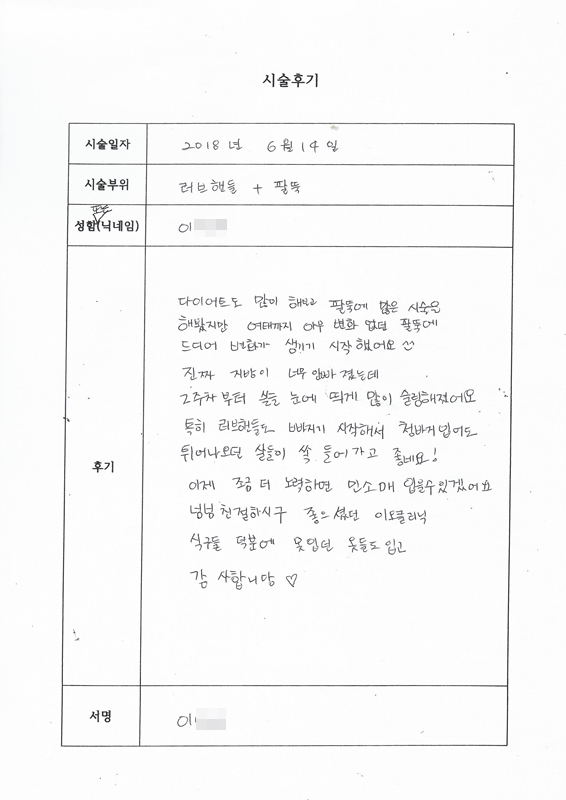 시술후기
시술일자 2018년 6월 14일
시술부위 러브핸들 + 팔뚝
또는
성함(닉네임) 이
후기
다이어트도 많이 해봤고 팔뚝에 많은 시술은
해봤지만 여태까지 아무 변화 없던 팔뚝에
드디어 변화가 생기기 시작했어요
진짜 지방이 너무 안빠졌는데
2주차부터 살들 눈에 띄게 많이 슬림해졌어요
특히 러브핸들도 빠지기 시작해서 청바지입어도
튀어나오던 살들이 쏙 들어가고 좋네요!
이제 조금 더 노력하면 민소매 입을수있겠어요
넘넘 친절하시구 좋으셨던
식구들 덕분에 못입던 옷들도 입고
감사합니당 ♡
서명 이